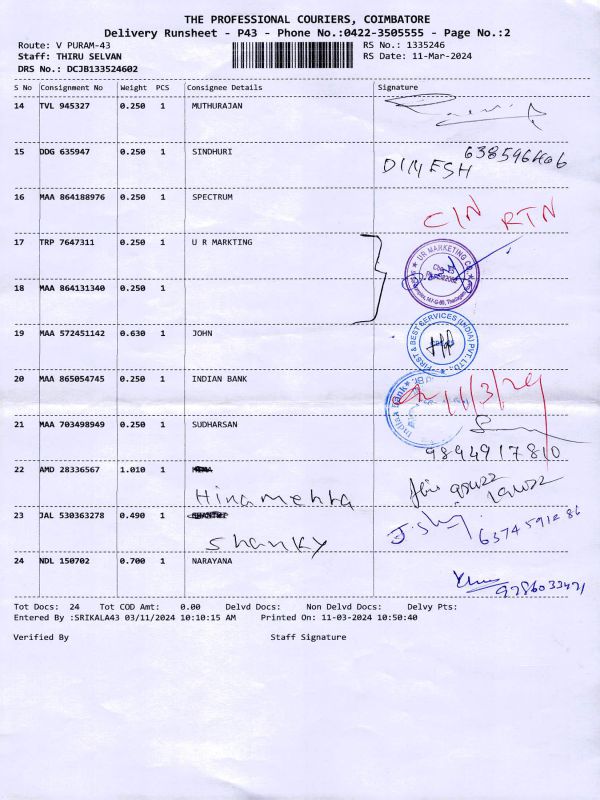 THE PROFESSIONAL COURIERS, COIMBATORE
Delivery Runsheet - P43 - Phone No.:0422-3505555 - Page No.:2
Route: V PURAM-43 RS No.: 1335246
Staff: THIRU SELVAN RS Date: 11-Mar-2024
DRS No.: DCJB133524602
S No Consignment No Weight PCS Consignee Details Signature
14 TVL 945327 0.250 1 MUTHURAJAN
15 DDG 635947 0.250 1 SINDHURI DINESH
16 MAA 864188976 0.250 1 SPECTRUM
RTN
17 TRP 7647311 0.250 1 U R MARKTING
UR MARKETING CO
18 MAA 864131340 0.250 1
19 MAA 572451142 0.630 1 JOHN
FIRST & BEST SERVICES (INDIA) PVT. LTD.
20 MAA 865054745 0.250 1 INDIAN BANK
Indian Bank
11/3/24
21 MAA 703498949 0.250 1 SUDHARSAN
9894917810
22 AMD 28336567 1.010 1
Hina mehta
23 JAL 530363278 0.490 1
Shanky
24 NDL 150702 0.700 1 NARAYANA
Tot Docs: 24 Tot COD Amt: 0.00 Delvd Docs: Non Delvd Docs: Delvy Pts:
Entered By :SRIKALA43 03/11/2024 10:10:15 AM Printed On: 11-03-2024 10:50:40
Verified By Staff Signature